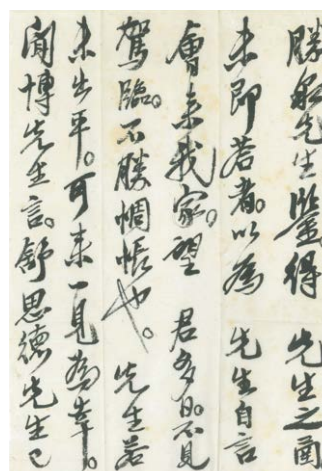 勝泉先生鑒得 先生之函
未即若者。以為 先生自言
會来我家。望 君多日。不見
駕臨。不勝惆悵也。 先生若
未出平。可来一見為幸。
聞博先生言。舒思德先生已